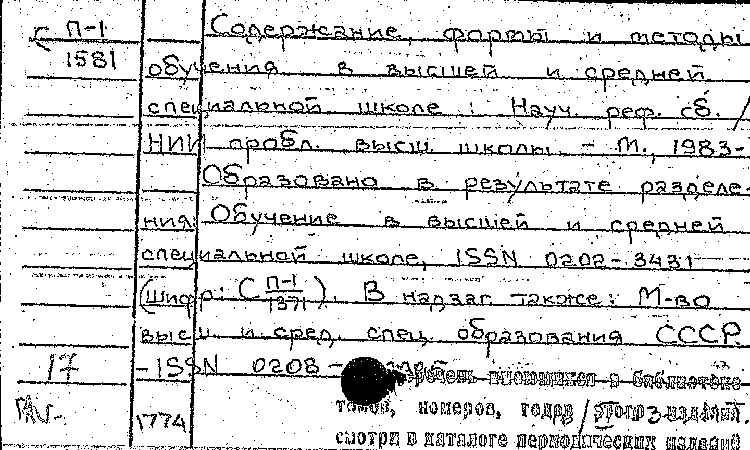 С П-1 Содержание, формы и методы
1581 обучения в высшей и средней
специальной школе : Науч. реф. сб. /
НИИ пробл. высш. школы. - М., 1983-
Образовано в результате разделе-
ния: Обучение в высшей и средней
специальной школе, ISSN 0202-3431
(шифр: С П-1/1371). В надзаг. также: М-во
высш. и сред. спец. образования СССР.
17 - ISSN 0208-
Перечень имеющихся в библиотеке
1774 томов, номеров, годов этого издания.
смотри в каталоге периодических изданий